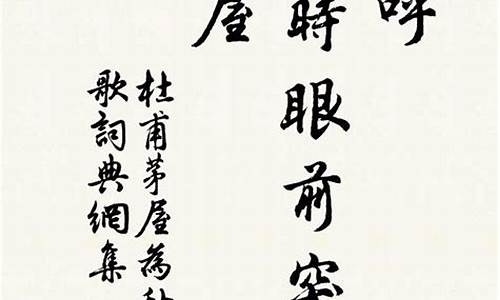 呼
時眼前突
屋
杜甫茅屋為秋
歌詞典網集